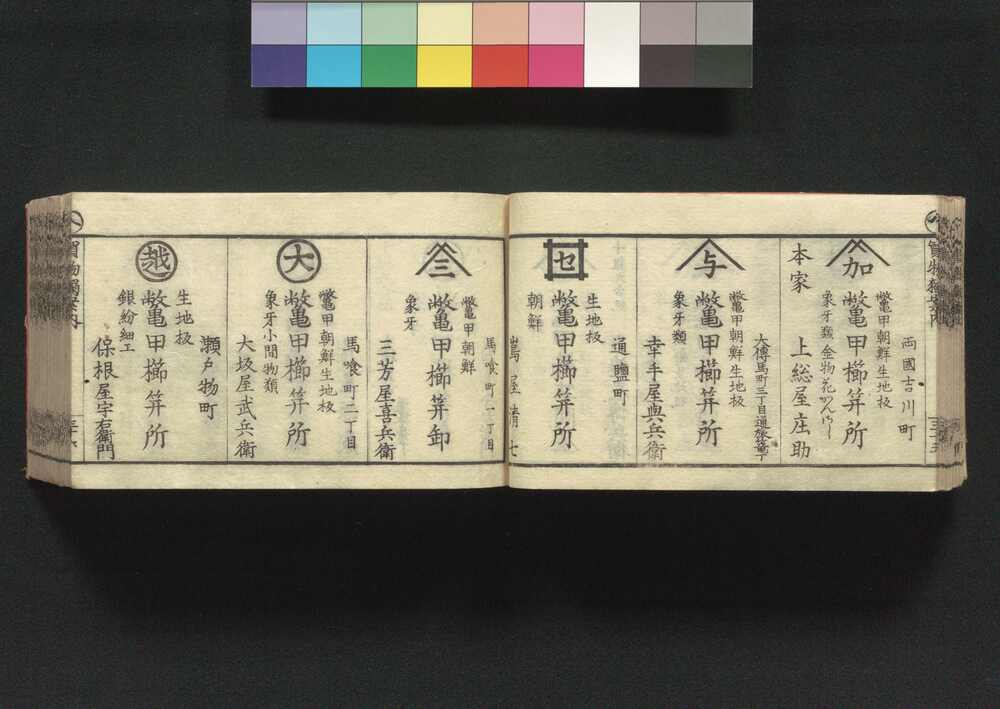 加
両國吉川町
鼈甲朝鮮生地板
鼈甲櫛笄所
象牙類金物花かんざし
本家
上総屋庄助
与
大傳馬町三丁目通旅籠丁
鼈甲朝鮮生地板
鼈甲櫛笄所
象牙類
幸手屋與兵衛
セ
通鹽町
生地板
鼈甲櫛笄所
朝鮮
屋清七
三
馬喰町一丁目
鼈甲朝鮮
鼈甲櫛笄卸
象牙
三芳屋喜兵衛
大
馬喰町二丁目
鼈甲朝鮮生地板
鼈甲櫛笄所
象牙小間物類
大坂屋武兵衛
越
瀬戸物町
生地板
鼈甲櫛笄所
銀紛細工
保根屋宇右衛門
買物獨案内